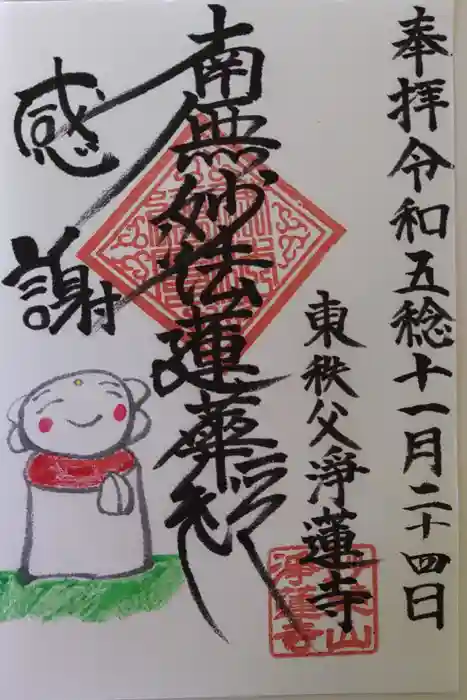 奉拝令和五稔十一月二十四日
東秩父浄蓮寺
南無妙法蓮華經
感謝
浄蓮寺